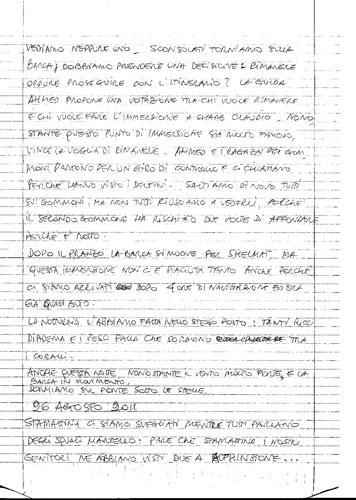 VEDIAMO NEPPURE UNO. SCONSOLATI TORNIAMO SULLA
BARCA; DOBBIAMO PRENDERE UNA DECISIONE: RIMANERE
OPPURE PROSEGUIRE CON L'ITINERARIO? LA GUIDA
AHMED PROPONE UNA VOTAZIONE TRA CHI VUOLE RIMANERE
E CHI VUOLE FARE L'IMMERSIONE A SHAAB CLAUDIO. NONO-
STANTE QUESTO PUNTO DI IMMERSIONE SIA MOLTO FAMOSO,
VINCE LA VOGLIA DI RIMANERE. AHMED E I RAGAZZI DEI GOM-
MONI PARTONO PER UN GIRO DI CONTROLLO E CI CHIAMANO
PERCHÈ HANNO VISTO I DELFINI. SALTIAMO DI NUOVO TUTTI
SUI GOMMONI, MA NON TUTTI RIUSCIAMO A VEDERLI, PERCHÈ
IL SECONDO GOMMONE HA RISCHIATO DUE VOLTE DI AFFONDARE
PERCHÈ È ROTTO.
DOPO IL PRANZO LA BARCA SI MUOVE PER SHELMAT, MA
QUESTA IMMERSIONE NON CI È PIACIUTA TANTO ANCHE PERCHÈ
CI SIAMO ARRIVATI DOPO 4 ORE DI NAVIGAZIONE ED ERA
GIÀ QUASI BUIO.
LA NOTTURNA L'ABBIAMO FATTA NELLO STESSO POSTO: TANTI RICCI
DIADEMA E I PESCI PALLA CHE DORMONO TRA
I CORALLI.
ANCHE QUESTA NOTTE, NONOSTANTE IL VENTO MOLTO FORTE, E LA
BARCA IN MOVIMENTO,
DORMIAMO SUL PONTE SOTTO LE STELLE.
26 AGOSTO 2011
STAMATTINA CI SIAMO SVEGLIATI MENTRE TUTTI PARLANO
DEGLI SQUALI MARTELLO: PARE CHE STAMATTINA I NOSTRI
GENITORI NE ABBIANO VISTI DUE A IMMERSIONE...